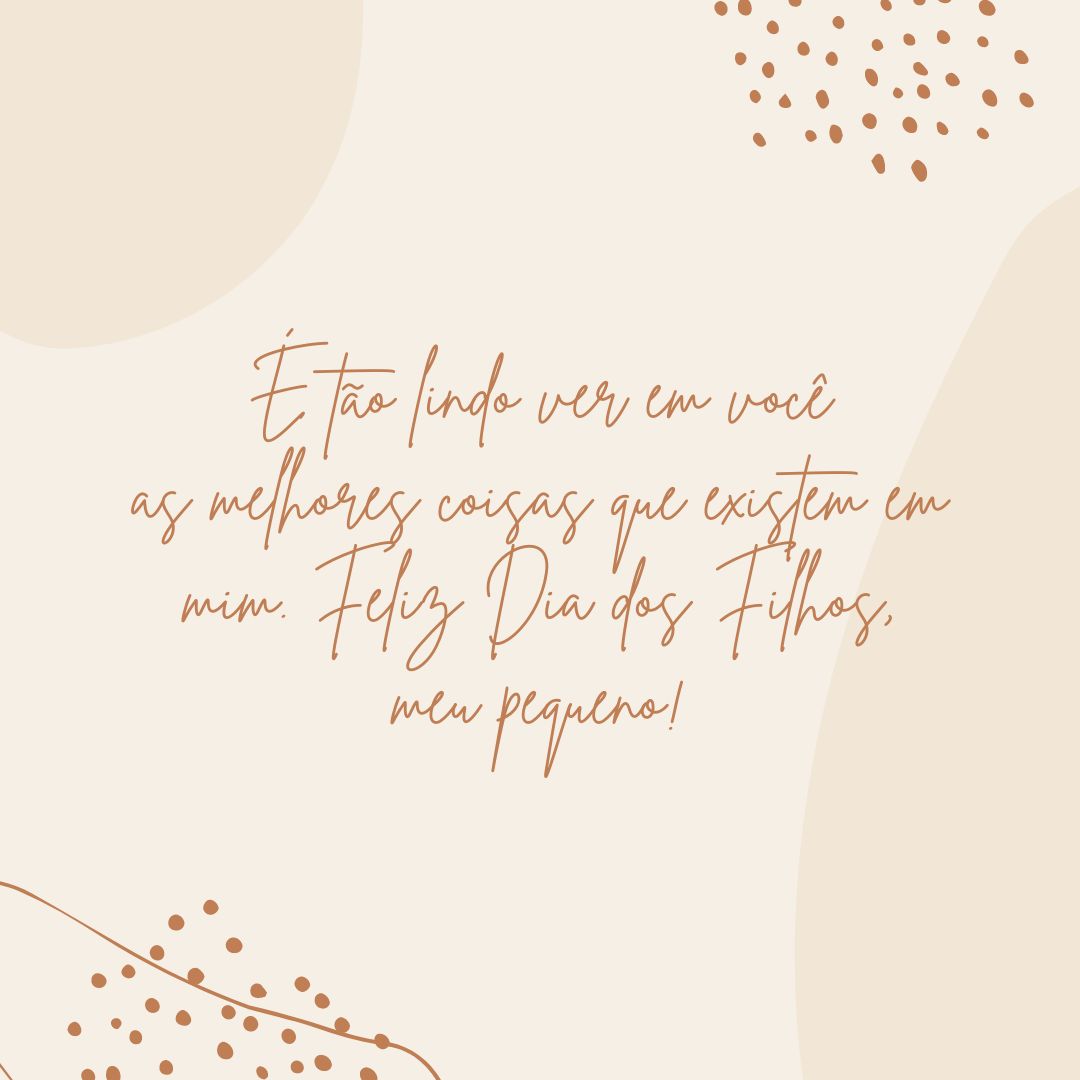 É tão lindo ver em você
as melhores coisas que existem em
mim. Feliz Dia dos Filhos,
meu pequeno!